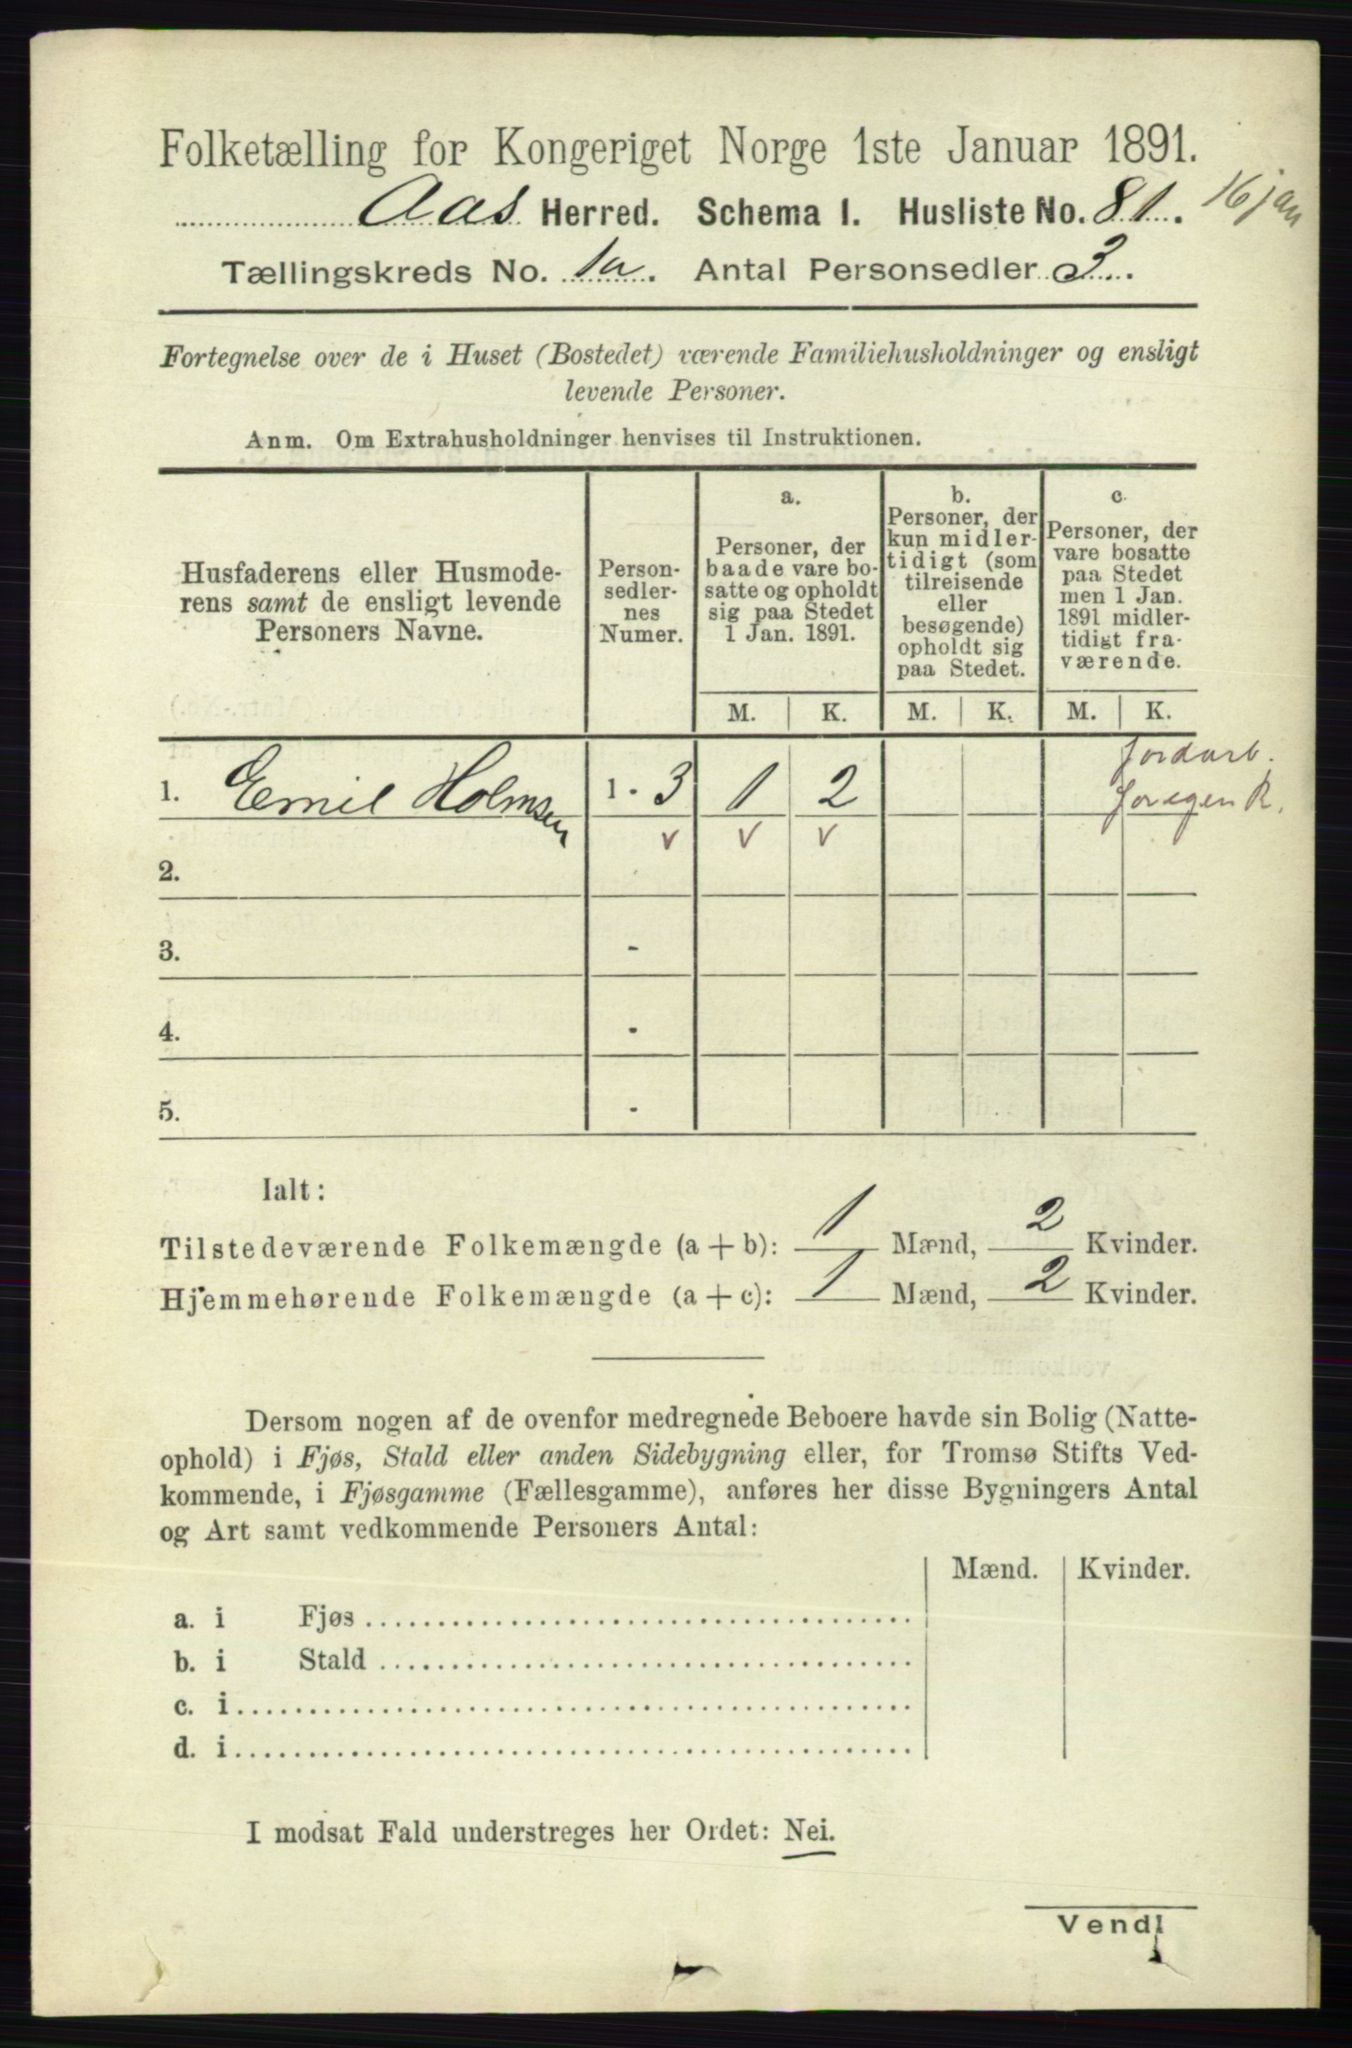 Folketælling for Kongeriget Norge 1ste Januar 1891.
Aas Herred. Schema I. Husliste No. 81. 16 jan
Tællingskreds No. 1a. Antal Personsedler 3.
Fortegnelse over de i Huset (Bostedet) værende Familiehusholdninger og ensligt
levende Personer.
Anm. Om Extrahusholdninger henvises til Instruktionen.
Husfaderens eller Husmode-
rens samt de ensligt levende
Personers Navne.
Person-
sedler-
nes
Numer.
a.
Personer, der
baade vare bo-
satte og opholdt
sig paa Stedet
1 Jan. 1891.
b.
Personer, der
kun midler-
tidigt (som
tilreisende
eller
besøgende)
opholdt sig
paa Stedet.
c.
Personer, der
vare bosatte
paa Stedet
men 1 Jan.
1891 midler-
tidigt fra-
værende.
M. K. M. K. M. K.
1. Emil Holmsen 1 - 3 1 2
jordarb.
for egen R.
v v v
2.
3. -
4. -
5. -
Ialt:
Tilstedeværende Folkemængde (a + b): 1 Mænd, 2 Kvinder.
Hjemmehørende Folkemængde (a + c): 1 Mænd, 2 Kvinder.
Dersom nogen af de ovenfor medregnede Beboere havde sin Bolig (Natte-
ophold) i Fjøs, Stald eller anden Sidebygning eller, for Tromsø Stifts Ved-
kommende, i Fjøsgamme (Fællesgamme), anføres her disse Bygningers Antal
og Art samt vedkommende Personers Antal:
Mænd. Kvinder.
a. i Fjøs
b. i Stald
c. i
d. i
I modsat Fald understreges her Ordet: Nei.
Vend!